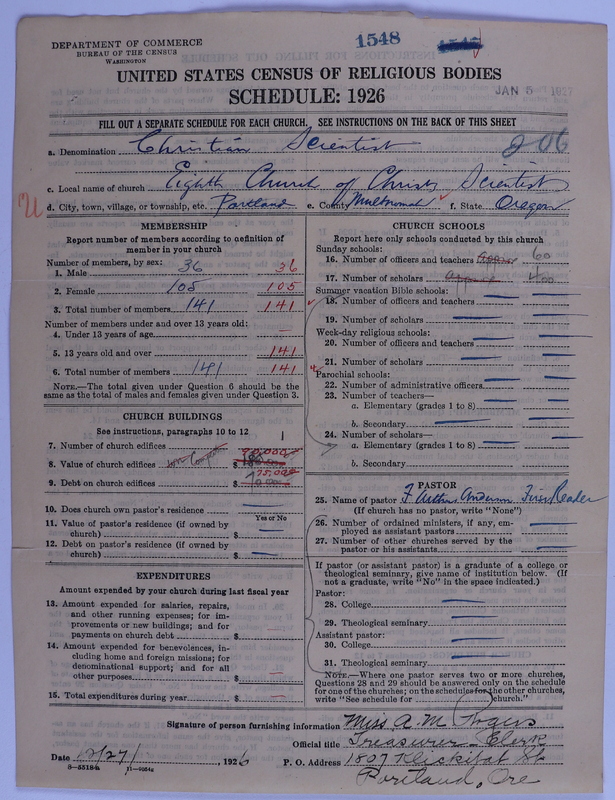 1548
DEPARTMENT OF COMMERCE
BUREAU OF THE CENSUS
WASHINGTON
UNITED STATES CENSUS OF RELIGIOUS BODIES
SCHEDULE: 1926
JAN 5 1927
FILL OUT A SEPARATE SCHEDULE FOR EACH CHURCH. SEE INSTRUCTIONS ON THE BACK OF THIS SHEET
a. Denomination Christian Scientist 206
c. Local name of church Eighth Church of Christ, Scientist
d. City, town, village, or township, etc. Portland e. County Multnomah f. State Oregon
MEMBERSHIP
Report number of members according to definition of
member in your church
Number of members, by sex:
1. Male 36 36
2. Female 105 105
3. Total number of members 141 141
Number of members under and over 13 years old:
4. Under 13 years of age —
5. 13 years old and over 141
6. Total number of members 141 141
NOTE.—The total given under Question 6 should be the
same as the total of males and females given under Question 3.
CHURCH BUILDINGS
See instructions, paragraphs 10 to 12
7. Number of church edifices 1
8. Value of church edifices $
9. Debt on church edifices $
10. Does church own pastor's residence
Yes or No
11. Value of pastor's residence (if owned by
church) $
12. Debt on pastor's residence (if owned by
church) $
EXPENDITURES
Amount expended by your church during last fiscal year
13. Amount expended for salaries, repairs,
and other running expenses; for im-
provements or new buildings; and for
payments on church debt $
14. Amount expended for benevolences, in-
cluding home and foreign missions; for
denominational support; and for all
other purposes $ —
15. Total expenditures during year $ —
CHURCH SCHOOLS
Report here only schools conducted by this church
Sunday schools:
16. Number of officers and teachers 60
17. Number of scholars 400
Summer vacation Bible schools:
18. Number of officers and teachers
19. Number of scholars
Week-day religious schools:
20. Number of officers and teachers
21. Number of scholars
Parochial schools:
22. Number of administrative officers
23. Number of teachers—
a. Elementary (grades 1 to 8)
b. Secondary
24. Number of scholars—
a. Elementary (grades 1 to 8)
b. Secondary
PASTOR
25. Name of pastor F. Arthur Anderson First Reader
(If church has no pastor, write "None")
26. Number of ordained ministers, if any, em-
ployed as assistant pastors
27. Number of other churches served by the
pastor or his assistants
If pastor (or assistant pastor) is a graduate of a college or
theological seminary, give name of institution below. (If
not a graduate, write "No" in the space indicated.)
Pastor:
28. College
29. Theological seminary
Assistant pastor:
30. College
31. Theological seminary
NOTE.—Where one pastor serves two or more churches,
Questions 28 and 29 should be answered only on the schedule
for one of the churches; on the schedules for the other churches,
write "See schedule for church."
Signature of person furnishing information Miss A. M.
Official title Treasurer - Clerk
Date 12/27/, 1926 P. O. Address 1807 Klickitat St
Portland, Ore
8—5518a 11—9054a